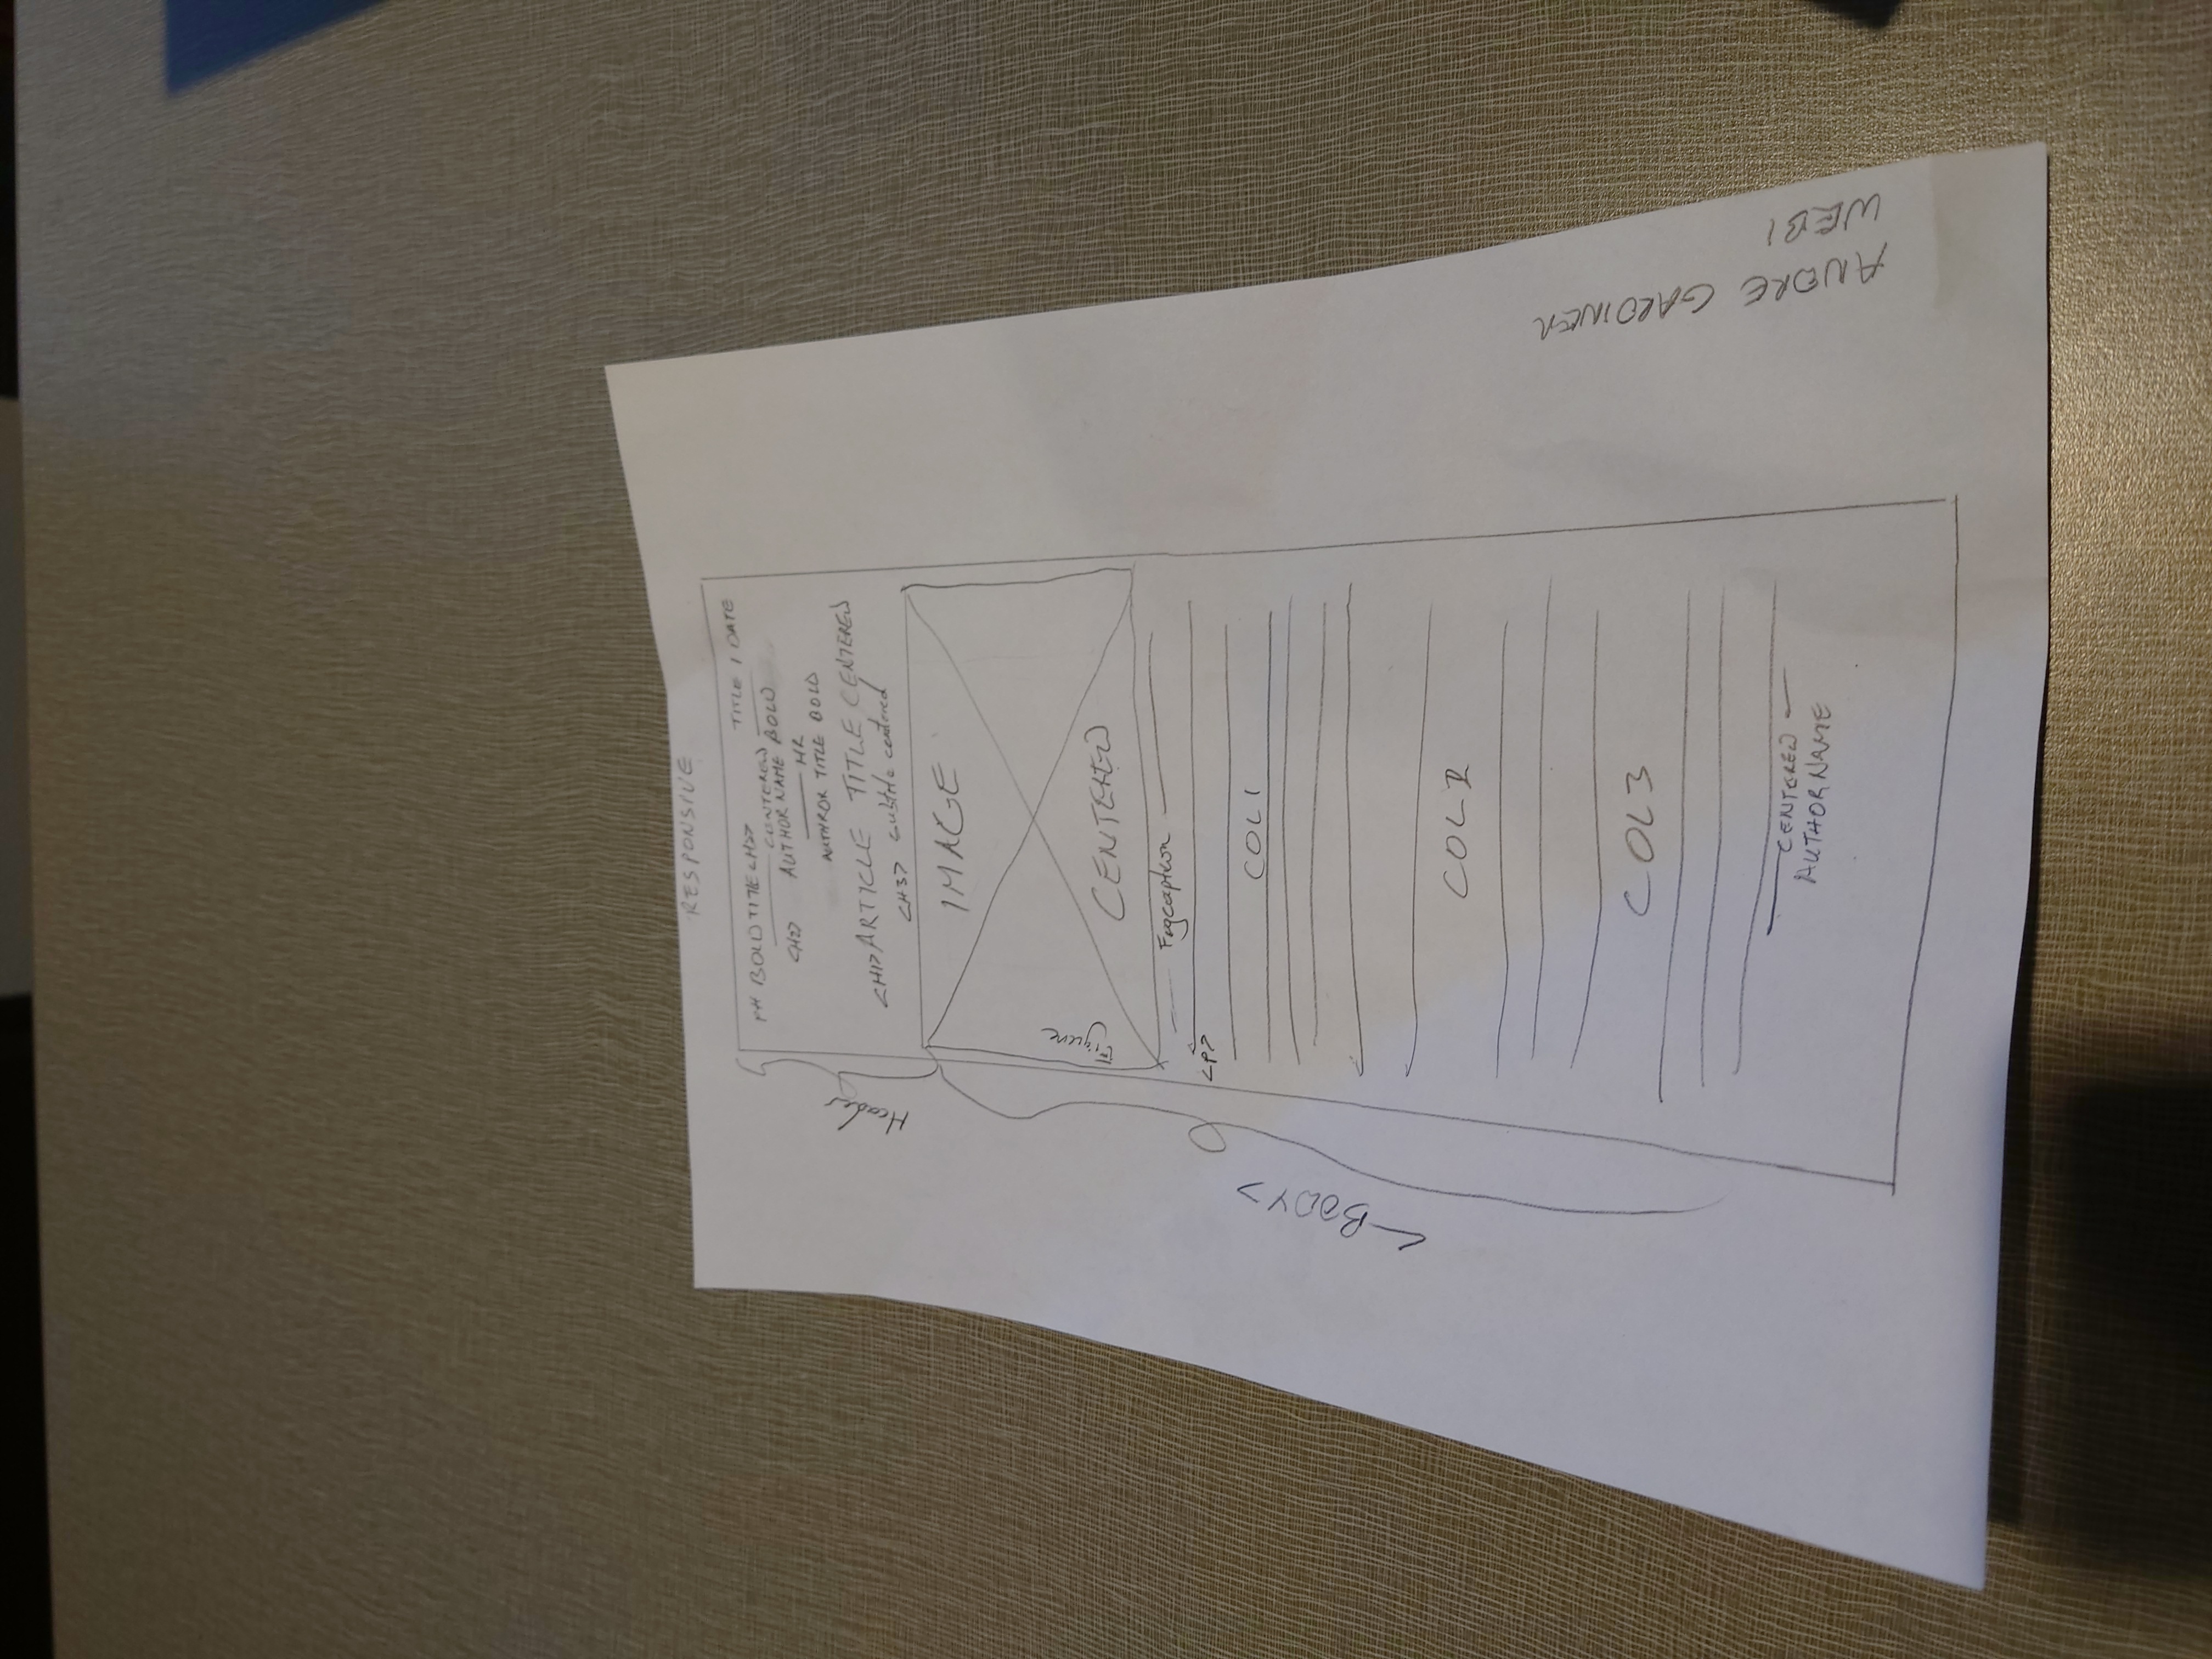 RESPONSIVE
BOLD TITLE <H2> TITLE / DATE
CENTERED
<H2> AUTHOR NAME BOLD
HR
AUTHROR TITLE BOLD
<H1> ARTICLE TITLE CENTERED
<H3> subtitle centered
Header
IMAGE
CENTERED
Figure
Figcaption
<P>
COL 1
<BODY>
COL 2
COL 3
CENTERED
AUTHOR NAME
ANDRE GARDINER
WEB1